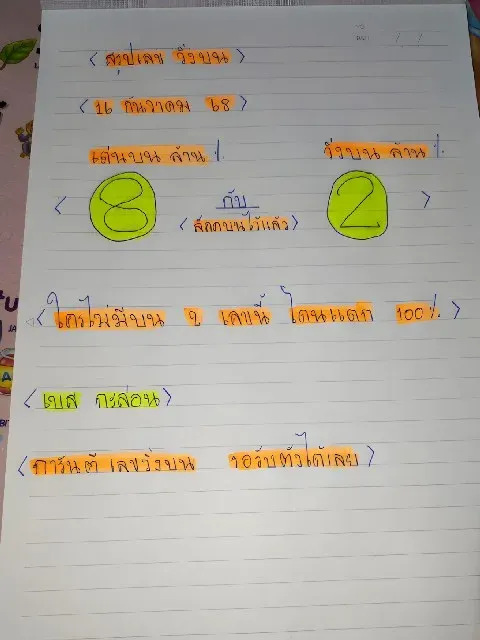 < สรุปเลข วิ่งบน >
< 16 ธันวาคม 68 >
เด่นบน ล้าน % วิ่งบน ล้าน %
< 8 กับ 2 >
< ล็อคบนไว้แล้ว >
< ใครไม่มีบน 2 เลขนี้ โดนแตก 100 % >
< เบส กะส่อน >
< การันตี เลขวิ่งบน รอรับตัวได้เลย >